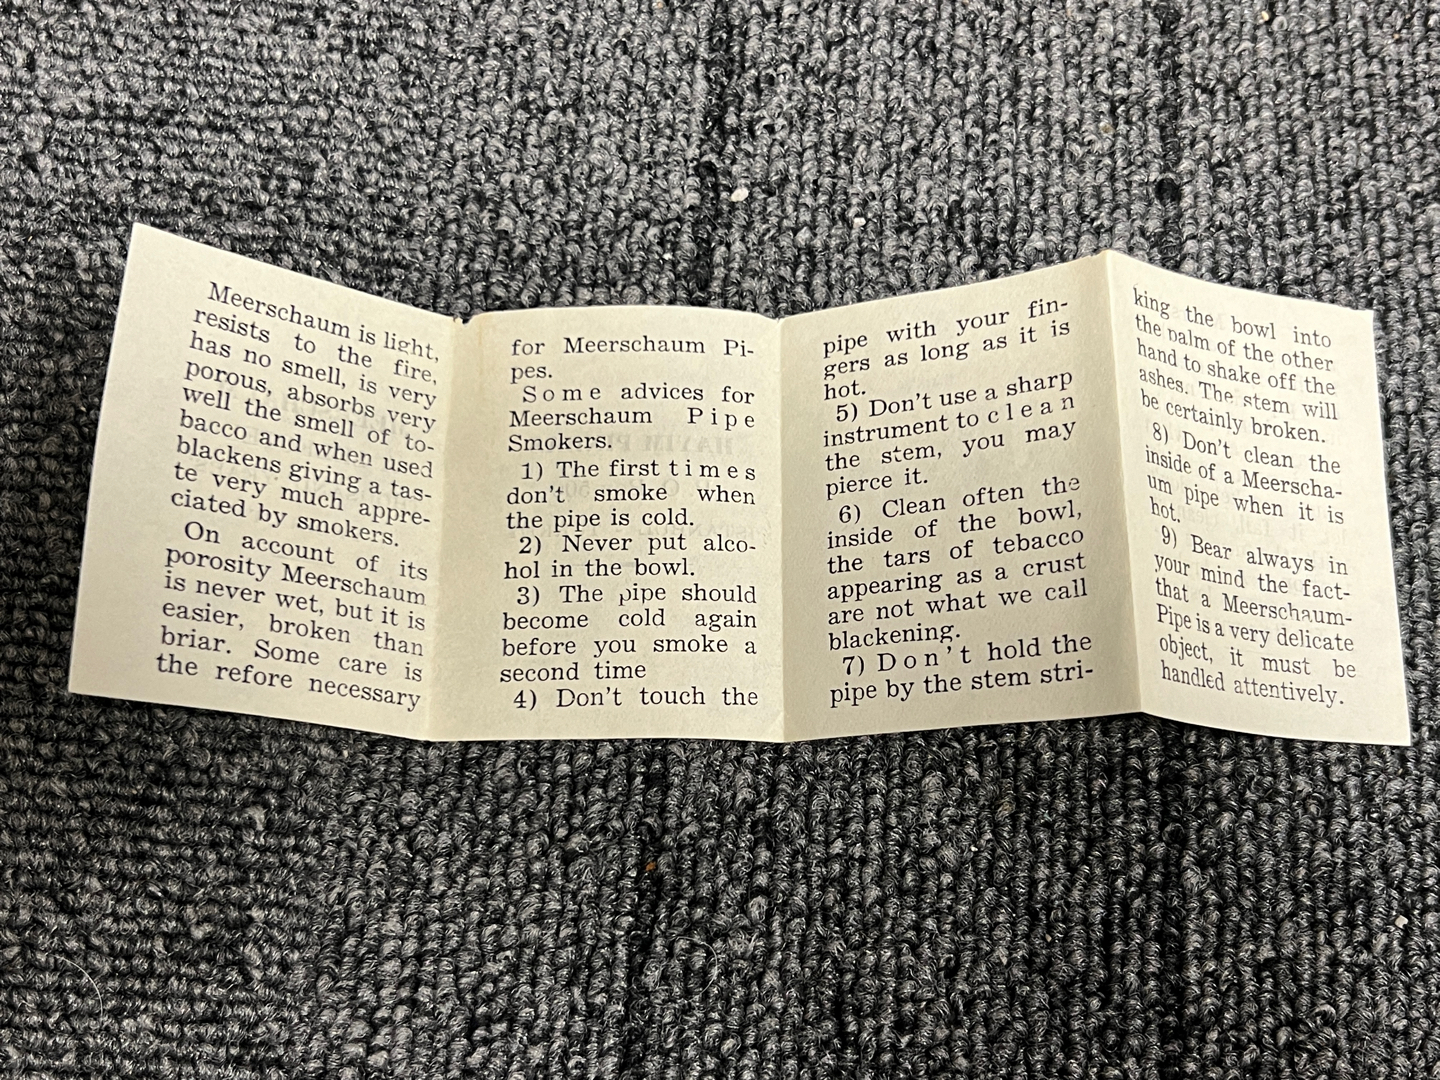 Meerschaum is light,
resists to the fire,
has no smell, is very
porous, absorbs very
well the smell of to-
bacco and when used
blackens giving a tas-
te very much appre-
ciated by smokers.
On account of its
porosity Meerschaum
is never wet, but it is
easier, broken than
briar. Some care is
the refore necessary
for Meerschaum Pi-
pes.
Some advices for
Meerschaum Pipe
Smokers.
1) The first times
don't smoke when
the pipe is cold.
2) Never put alco-
hol in the bowl.
3) The pipe should
become cold again
before you smoke a
second time
4) Don't touch the
pipe with your fin-
gers as long as it is
hot.
5) Don't use a sharp
instrument to clean
the stem, you may
pierce it.
6) Clean often the
inside of the bowl,
the tars of tebacco
appearing as a crust
are not what we call
blackening.
7) Don't hold the
pipe by the stem stri-
king the bowl into
the palm of the other
hand to shake off the
ashes. The stem will
be certainly broken.
8) Don't clean the
inside of a Meerscha-
um pipe when it is
hot.
9) Bear always in
your mind the fact-
that a Meerschaum-
Pipe is a very delicate
object, it must be
handled attentively.